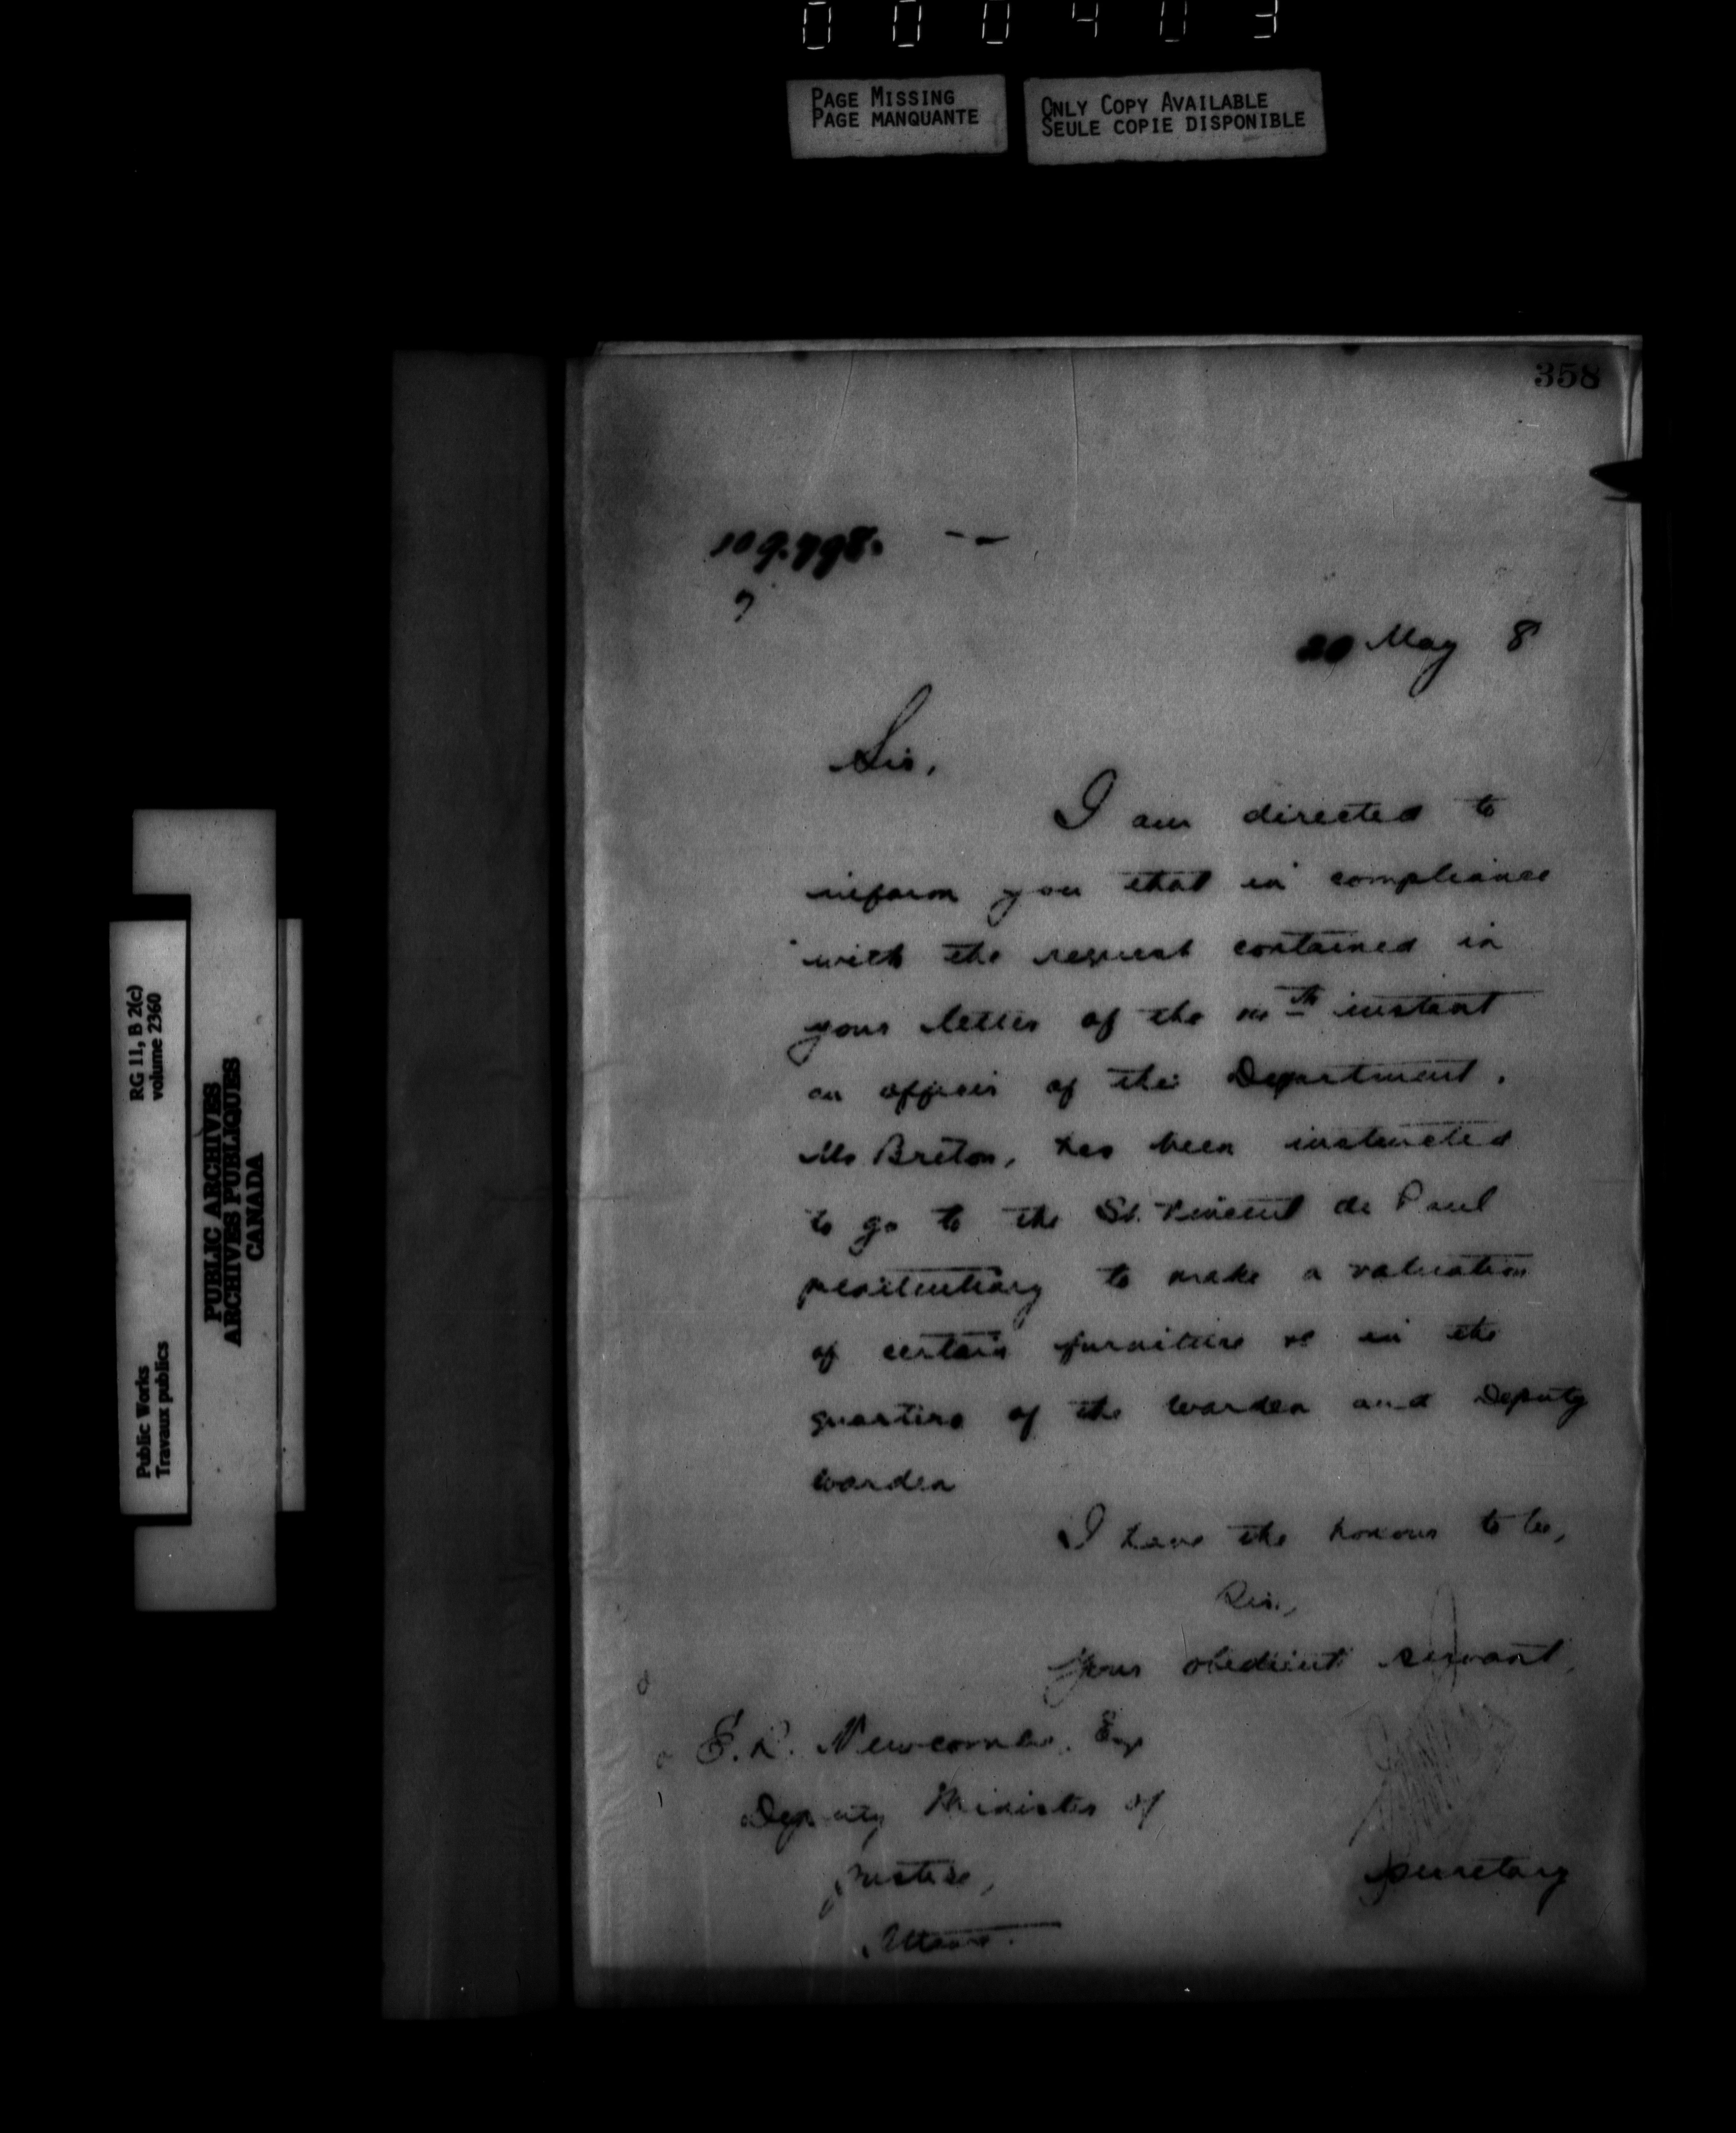 000403
PAGE MISSING
PAGE MANQUANTE
ONLY COPY AVAILABLE
SEULE COPIE DISPONIBLE
358
RG 11, B 2(c)
volume 2360
Public Works
Travaux publics
PUBLIC ARCHIVES
ARCHIVES PUBLIQUES
CANADA
109.798.
20 May 8
Sir,
I am directed to
inform you that in compliance
with the request contained in
your letter of the instant
an officer of the Department,
Mr Breton, has been instructed
to go to the St. Vincent de Paul
penitentiary to make a valuation
of certain furniture in the
quarters of the Warden and Deputy
Warden
I have the honour to be,
Sir,
Your obedient servant,
E. L. Newcombe, Esq
Deputy Minister of
Justice,
Ottawa.
Secretary